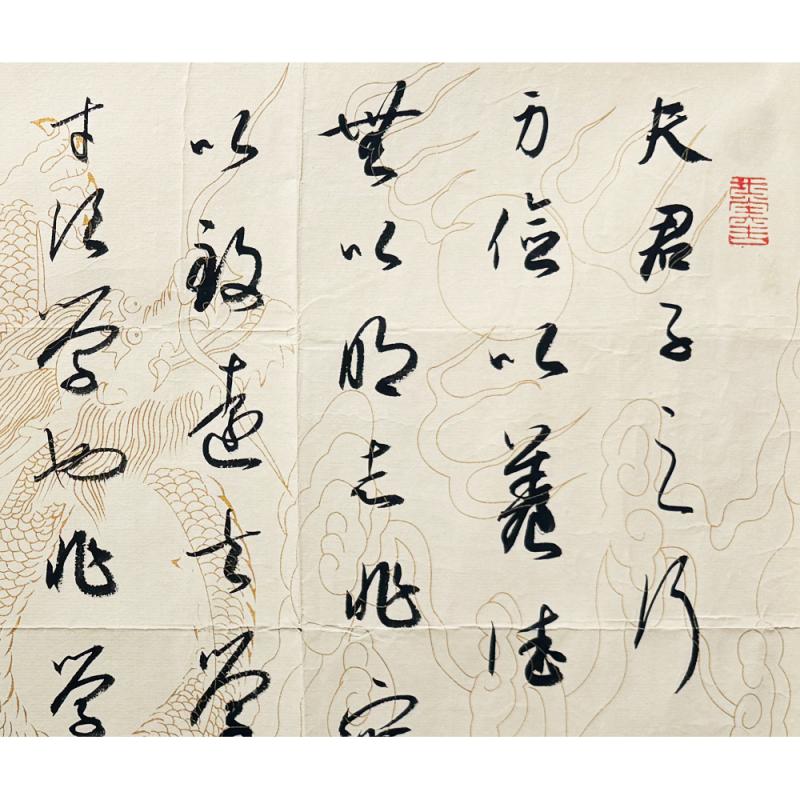 夫君子之行
身儉以養德
無以明志非寧
以致遠夫學
才須學也非學